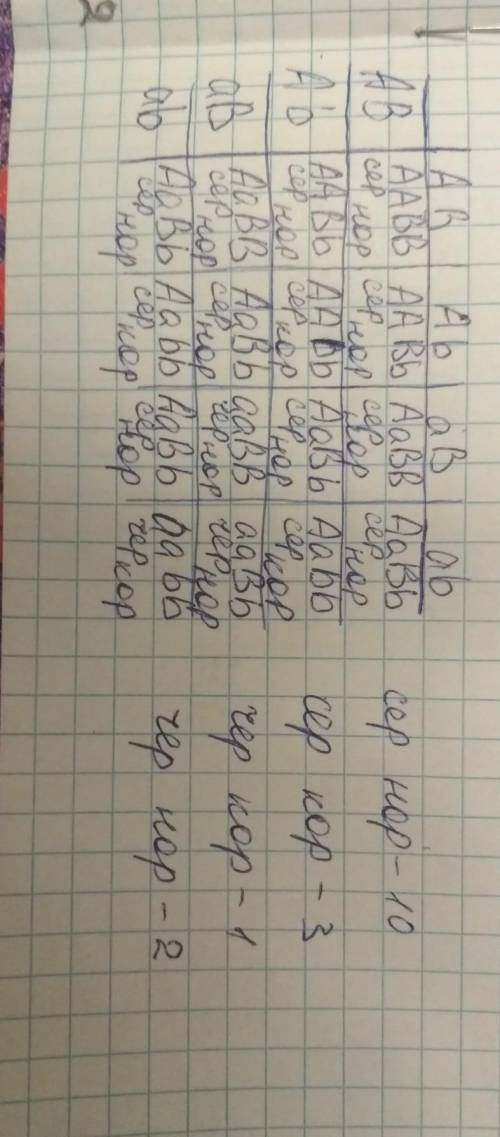 AB Ab aB ab
AB AABB AABb AaBB AaBb
сер нор сер нор сер нор сер нор
сер нор – 10
Ab AABb AAbb AaBb Aabb
сер нор сер кор сер нор сер кор
сер кор – 3
aB AaBB AaBb aaBB aaBb
сер нор сер нор чер нор чер нор
чер кор – 1
ab AaBb Aabb AaBb aabb
сер нор сер кор сер нор чер кор
чер нор – 2
2